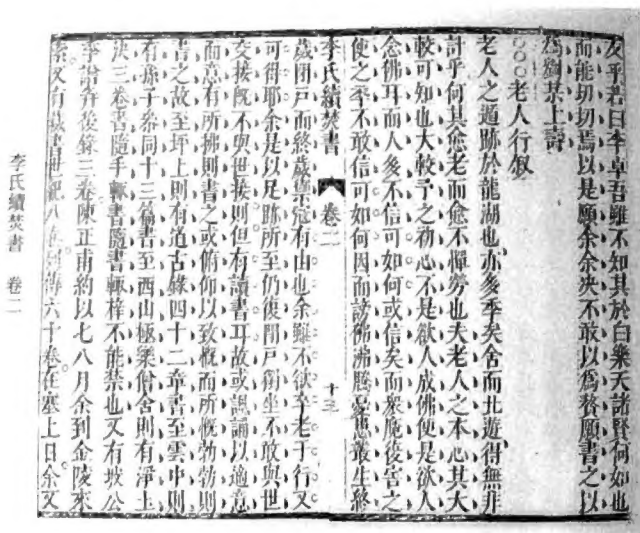 友乎若曰李卓吾雖不知其於白樂天諸賢何如也
而能切切焉以是願余余決不敢以爲贅願書之以
爲劉某上壽
○○○老人行叙
老人之遁跡於龍湖也亦多季矣舍而北遊得無非
計乎何其愈老而愈不憚勞也夫老人之本心其大
較可知也大較予之初心不是欲人成佛便是欲人
念佛耳而人多不信可如何或信矣而衆魔復害之
使之卒不敢信可如何因而謗佛沸騰憂患叢生終
李氏續焚書 卷二 十三
歲閉戸而終歲禦寇有由也余雖不欲卒老于行又
可得耶余是以足跡所至仍復閉戸獨坐不敢與世
交接旣不與世接則但有讀書耳故或諷誦以適意
而意有所拂則書之或俯仰以致慨而所慨勃勃則
書之故至坪上則有道古錄四十二章書至雲中則
有孫子參同十三篇書至西山極樂僧舍則有淨土
決三卷書隨手輒書隨書輒梓不能禁也又有坡公
李說弁後錄三卷陳正甫約以七八月余到金陵來
索又有藏書世紀八卷列傳六十卷在塞上日余又
李氏續焚書 卷二